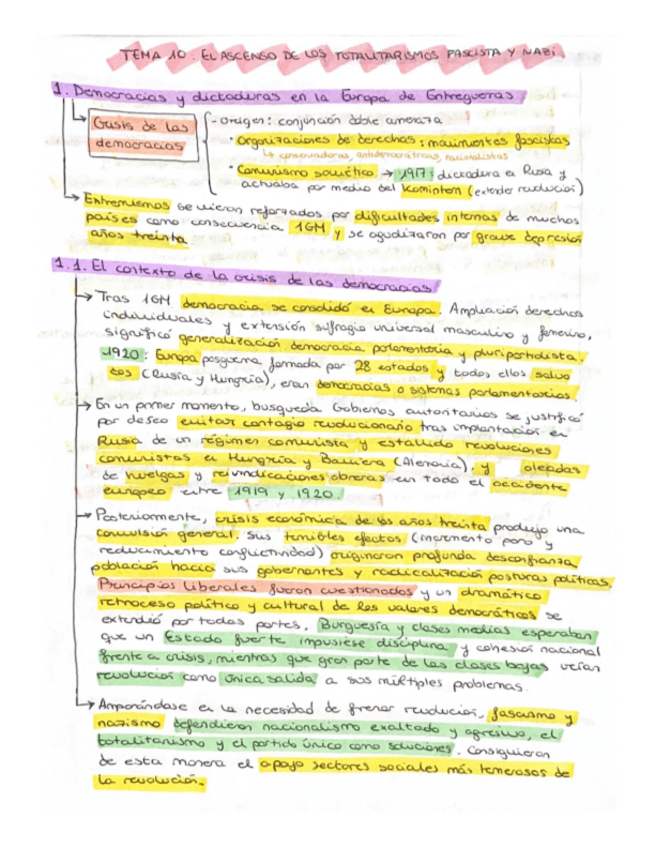 TEMA 10: EL ASCENSO DE LOS TOTALITARISMOS FASCISTA Y NAZI
1. Democracias y dictaduras en la Europa de Entreguerras
Crisis de las democracias
- Origen: conjunción doble amenaza
· Organizaciones de derechas: movimientos fascistas
↳ conservadoras, antidemocráticas, nacionalistas
· Comunismo soviético → 1917: dictadura en Rusia y
actuaba por medio del Komintern (extender revolución)
→ Extremismos se vieron reforzados por dificultades internas de muchos
países como consecuencia 1GM y se agudizaron por grave depresión
años treinta.
1.1. El contexto de la crisis de las democracias
→ Tras 1GM democracia se consolidó en Europa. Ampliación derechos
individuales y extensión sufragio universal masculino y femenino,
significó generalización democracia parlamentaria y pluripartidista.
1920: Europa posguerra formada por 28 estados y todos ellos salvo
dos (Rusia y Hungría), eran democracias o sistemas parlamentarios.
→ En un primer momento, busqueda Gobiernos autoritarios se justificó
por deseo evitar contagio revolucionario tras implantación en
Rusia de un régimen comunista y estallido revoluciones
comunistas en Hungría y Baviera (Alemania), y oleadas
de huelgas y reivindicaciones obreras en todo el occidente
europeo entre 1919 y 1920.
→ Posteriormente, crisis económica de los años treinta produjo una
convulsión general. Sus temibles efectos (incremento paro y
recrudecimiento conflictividad) originaron profunda desconfianza
población hacia sus gobernantes y radicalización posturas políticas.
Principios Liberales fueron cuestionados y un dramático
retroceso político y cultural de los valores democráticos se
extendió por todas partes. Burguesía y clases medias esperaban
que un Estado fuerte impusiese disciplina y cohesión nacional
frente a crisis, mientras que gran parte de las clases bajas veían
revolución como única salida a sus múltiples problemas.
→ Amparándose en la necesidad de frenar revolución, fascismo y
nazismo defendieron nacionalismo exaltado y agresivo, el
totalitarismo y el partido único como soluciones. Consiguieron
de esta manera el apoyo sectores sociales más temerosos de
la revolución.